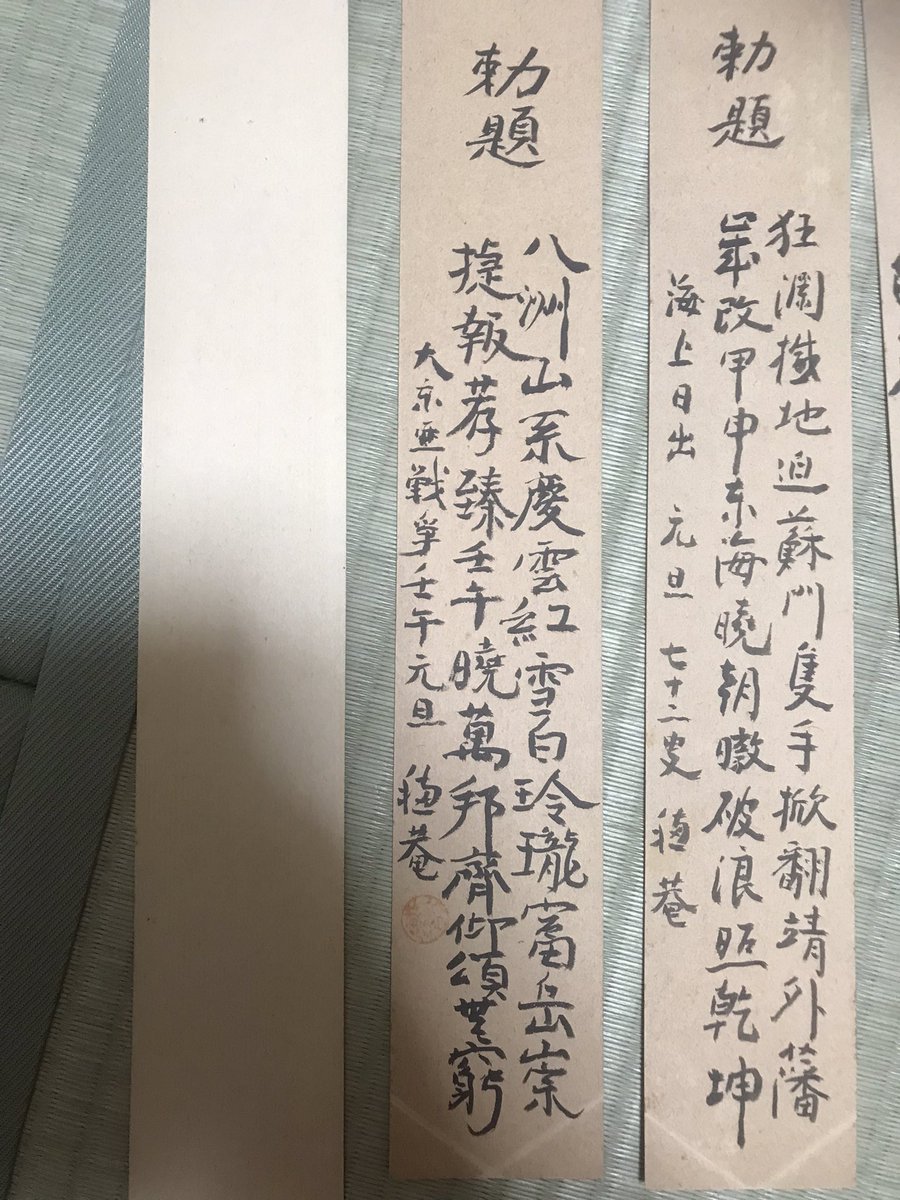 勅題
狂瀾撼地迫蘇門隻手掀翻靖外藩
歳改甲申东海曉朝暾破浪照乾坤
海上日出 元旦 七十二叟 穂菴
勅題
八洲山系慶雲紅雪白玲瓏富岳崇
捷報荐臻壬午曉萬邦齊仰頌無窮
大东亜戦争壬午元旦 穂菴